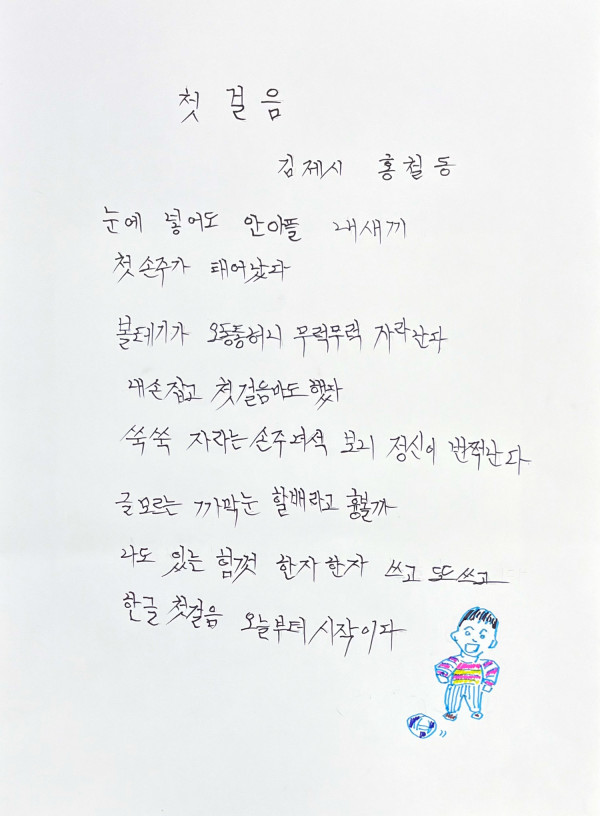 첫 걸음
김제시 홍철동
눈에 넣어도 안아플 내새끼
첫손주가 태어났다
볼테기가 오동통허니 무럭무럭 자라난다
내손잡고 첫걸음마도 했다
쑥쑥 자라는 손주녀석 보니 정신이 번쩍난다
글모르는 까막눈 할배라고 흉볼까
나도 있는 힘껏 한자한자 쓰고 또쓰고
한글 첫걸음 오늘부터 시작이다